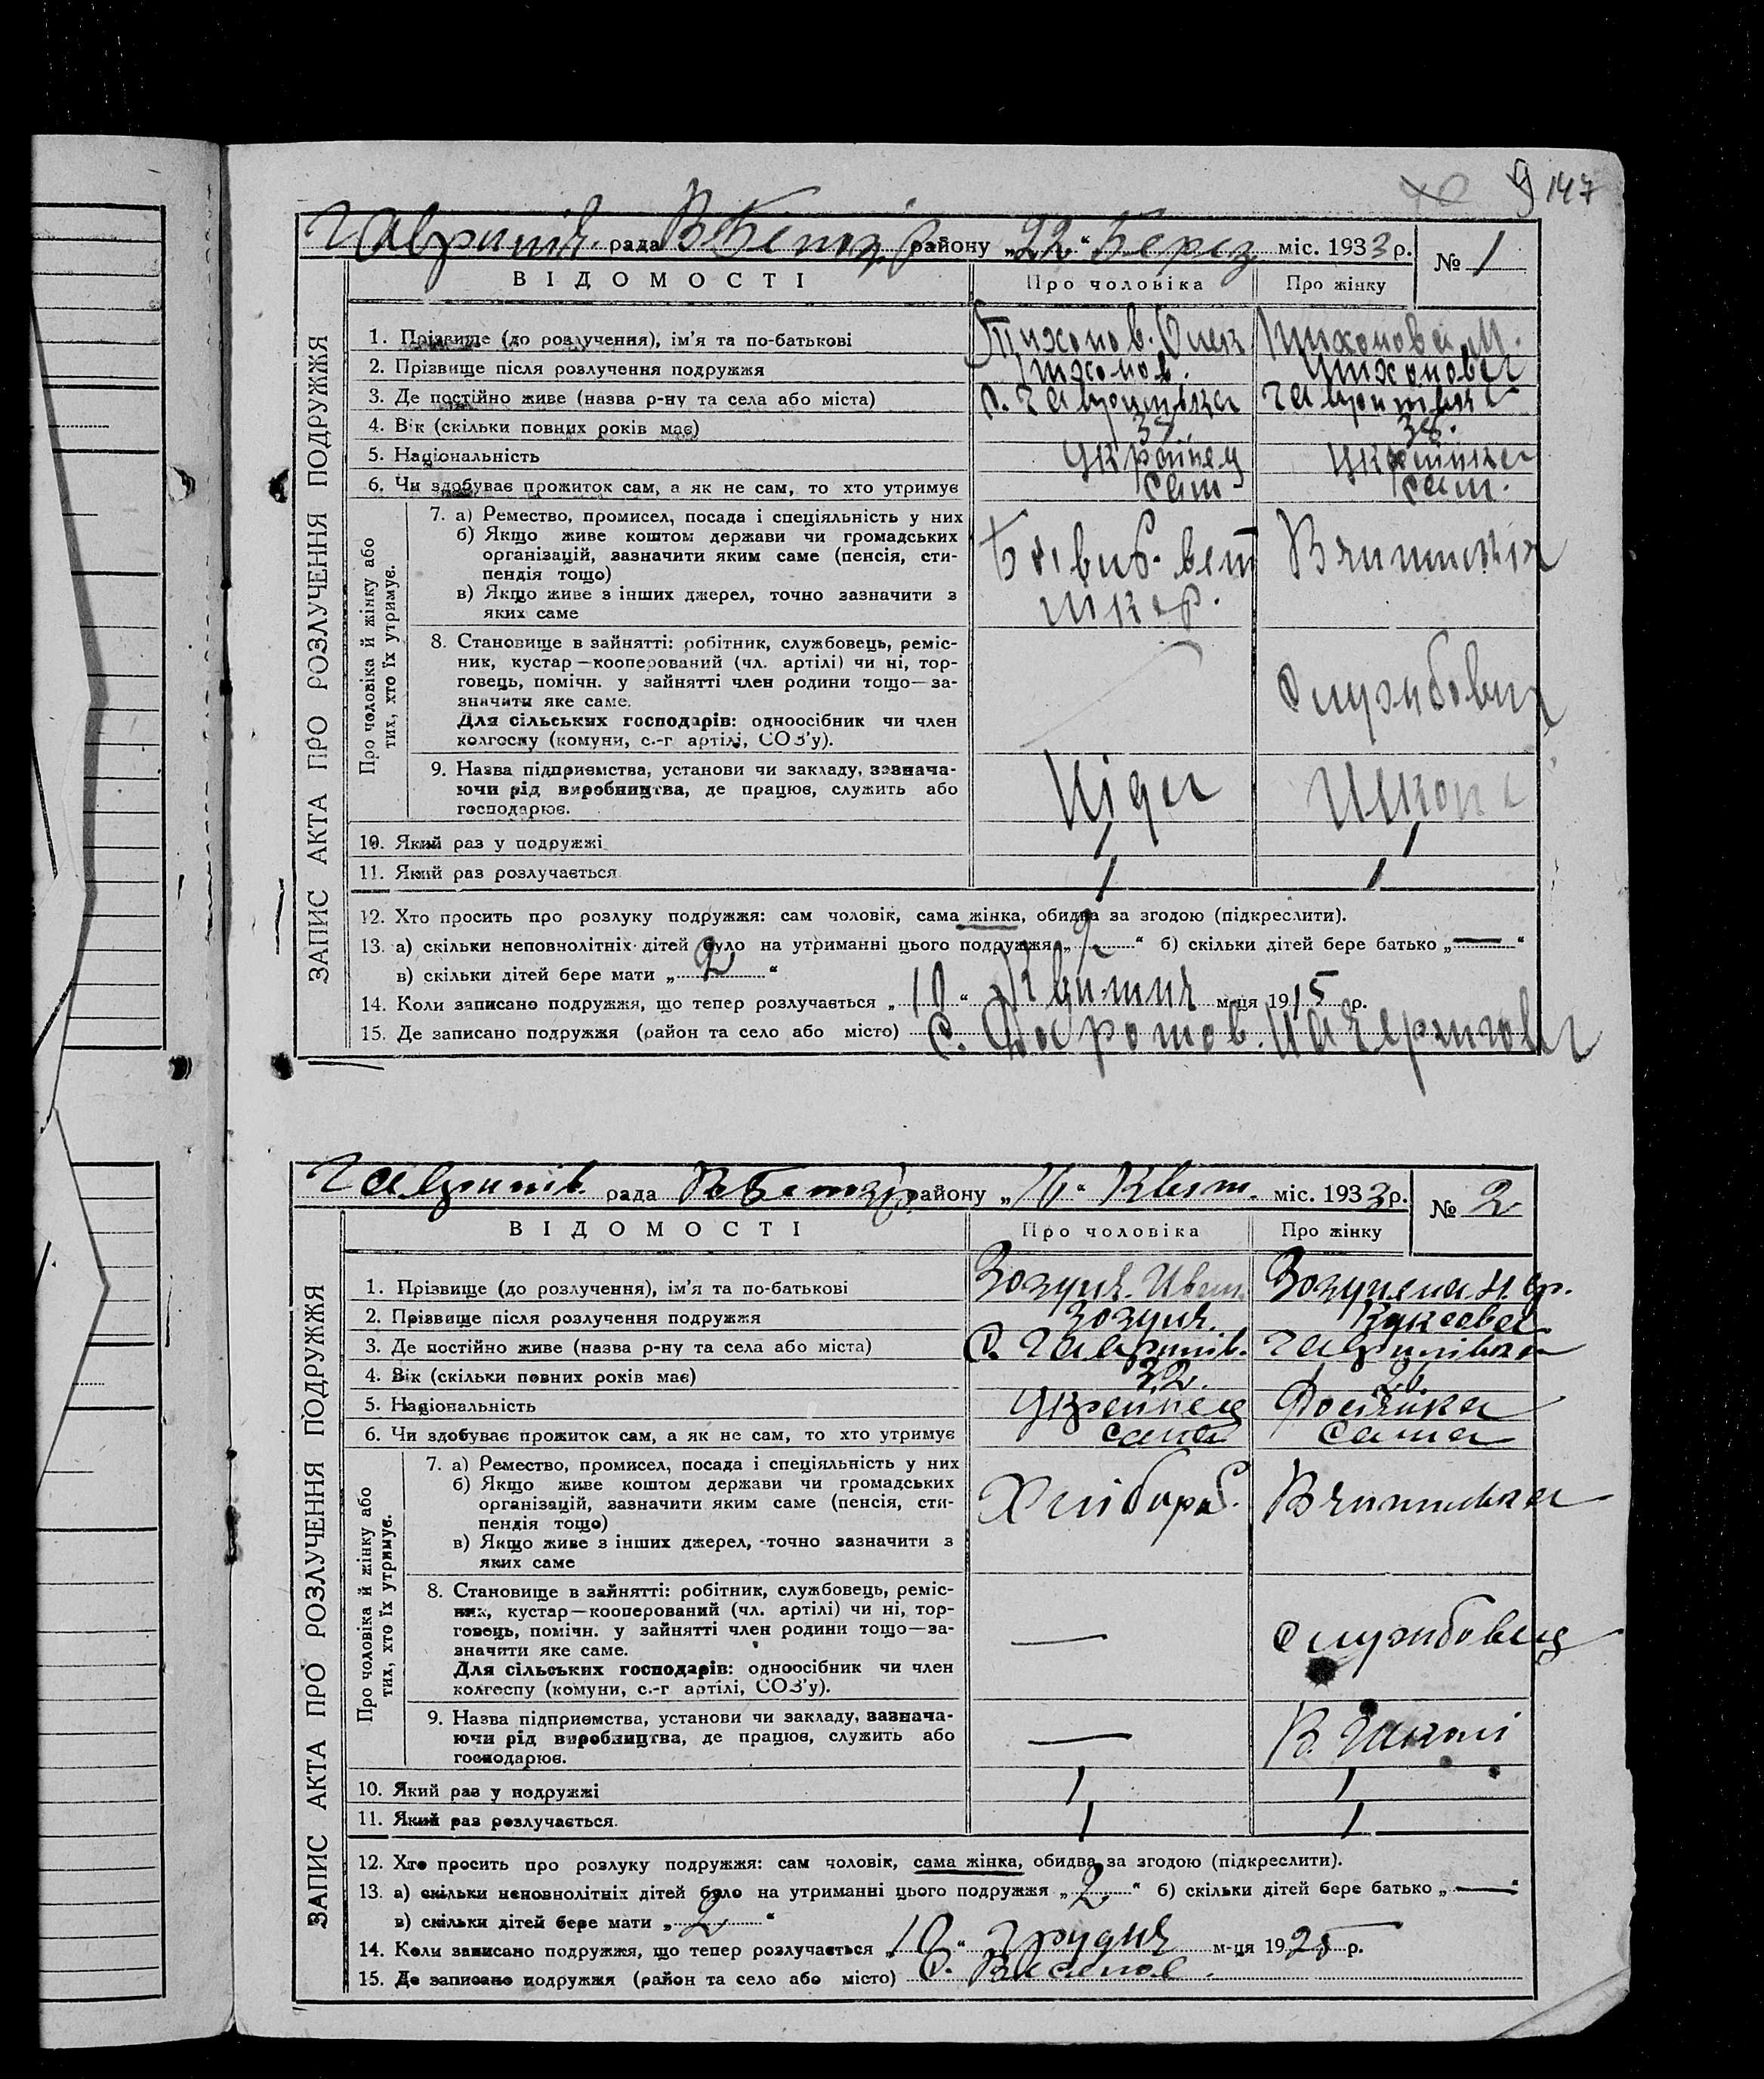 147
Гаврилів. рада району „22“ Берез міс. 1933 р. № 1
ЗАПИС АКТА ПРО РОЗЛУЧЕННЯ ПОДРУЖЖЯ
ВІДОМОСТІ Про чоловіка Про жінку
1. Прізвище (до розлучення), ім'я та по-батькові Тихонов. Олек Тихонова М.
2. Прізвище після розлучення подружжя Тихонов. Тихонова
3. Де постійно живе (назва р-ну та села або міста) с. Гаврилівка Гаврилівка
4. Вік (скільки повних років має) 38.
5. Національність Українец Українка
6. Чи здобуває прожиток сам, а як не сам, то хто утримує сам сам.
Про чоловіка й жінку або тих, хто їх утримує.
7. а) Ремество, промисел, посада і спеціяльність у них
б) Якщо живе коштом держави чи громадських
організацій, зазначити яким саме (пенсія, сти-
пендія тощо)
в) Якщо живе з інших джерел, точно зазначити з
яких саме
лікар. Вчителька
8. Становище в зайнятті: робітник, службовець, реміс-
ник, кустар—кооперований (чл. артілі) чи ні, тор-
говець, помічн. у зайнятті член родини тощо—за-
значити яке саме.
Для сільських господарів: одноосібник чи член
колгоспу (комуни, с.-г артілі, СОЗ'у).
Службовец
9. Назва підприємства, установи чи закладу, зазнача-
ючи рід виробництва, де працює, служить або
господарює.
Школа
10. Який раз у подружжі 1 1
11. Який раз розлучається 1 1
12. Хто просить про розлуку подружжя: сам чоловік, сама жінка, обидва за згодою (підкреслити).
13. а) скільки неповнолітніх дітей було на утриманні цього подружжя „2“ б) скільки дітей бере батько „—“
в) скільки дітей бере мати „2“
14. Коли записано подружжя, що тепер розлучається „10“ м-ця 1915 р.
15. Де записано подружжя (район та село або місто) с.
Гаврилів. рада району „ “ Квіт. міс. 1933 р. № 2
ЗАПИС АКТА ПРО РОЗЛУЧЕННЯ ПОДРУЖЖЯ
ВІДОМОСТІ Про чоловіка Про жінку
1. Прізвище (до розлучення), ім'я та по-батькові Зозуля. Иван.
2. Прізвище після розлучення подружжя Зозуля.
3. Де постійно живе (назва р-ну та села або міста) с. Гаврилів. Гаврилівка
4. Вік (скільки повних років має) 32.
5. Національність Українец Росіянка
6. Чи здобуває прожиток сам, а як не сам, то хто утримує сам сама
Про чоловіка й жінку або тих, хто їх утримує.
7. а) Ремество, промисел, посада і спеціяльність у них
б) Якщо живе коштом держави чи громадських
організацій, зазначити яким саме (пенсія, сти-
пендія тощо)
в) Якщо живе з інших джерел, точно зазначити з
яких саме
Хлібороб. Вчителька
8. Становище в зайнятті: робітник, службовець, реміс-
ник, кустар—кооперований (чл. артілі) чи ні, тор-
говець, помічн. у зайнятті член родини тощо—за-
значити яке саме.
Для сільських господарів: одноосібник чи член
колгоспу (комуни, с.-г артілі, СОЗ'у).
— Службовец
9. Назва підприємства, установи чи закладу, зазнача-
ючи рід виробництва, де працює, служить або
господарює.
— В. Школі
10. Який раз у подружжі 1 1
11. Який раз розлучається. 1 1
12. Хто просить про розлуку подружжя: сам чоловік, сама жінка, обидва за згодою (підкреслити).
13. а) скільки неповнолітніх дітей було на утриманні цього подружжя „2“ б) скільки дітей бере батько „—“
в) скільки дітей бере мати „2“
14. Коли записано подружжя, що тепер розлучається „10“ грудня м-ця 1925 р.
15. Де записано подружжя (район та село або місто) с.